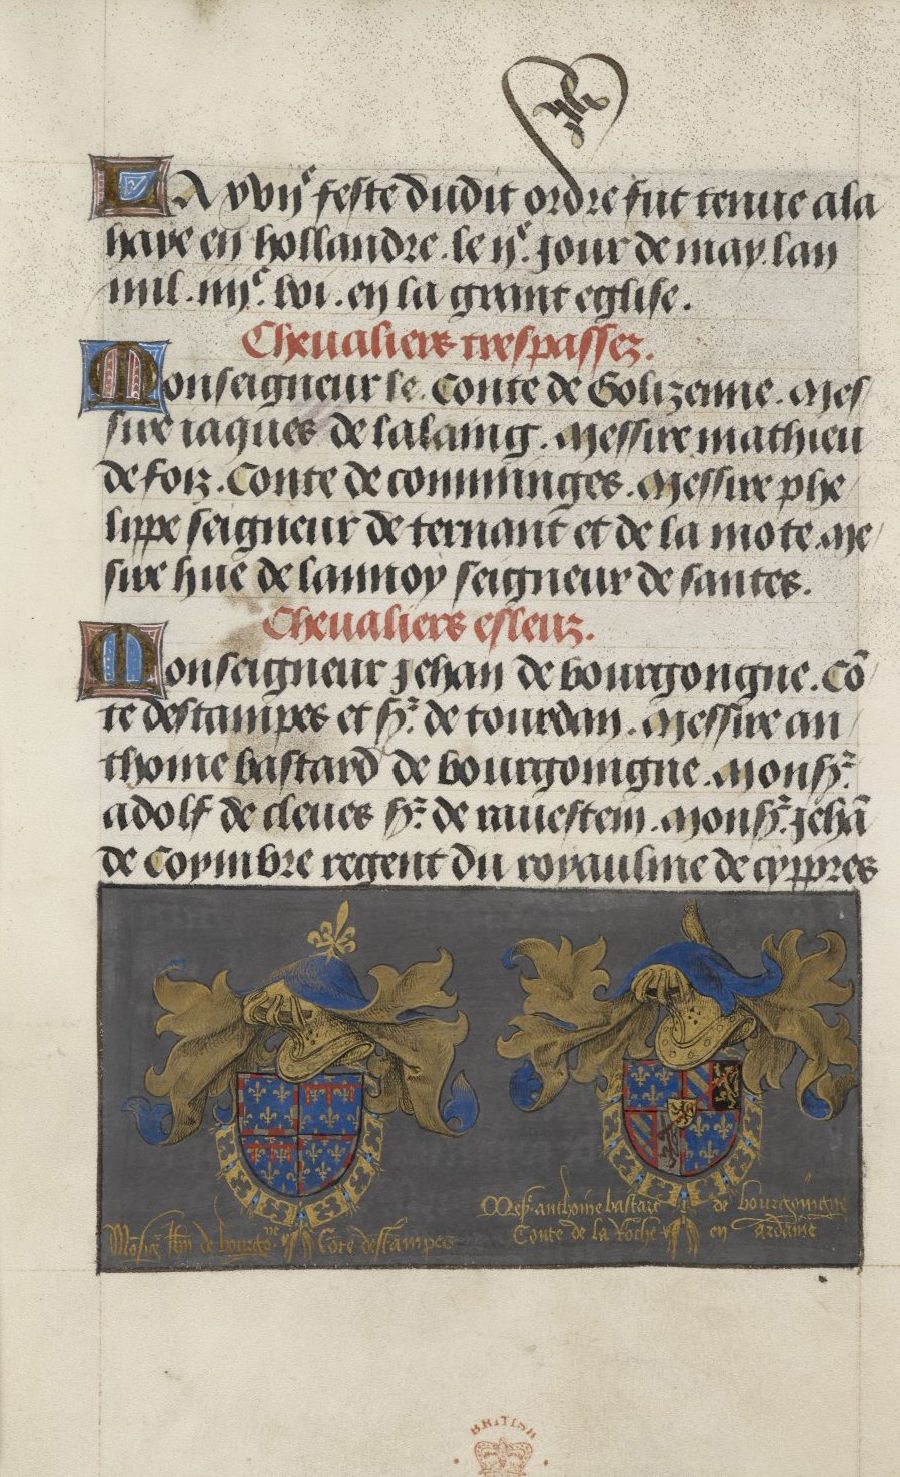 La xviije feste dudit ordre fut tenue a la
haye en hollandre . le ije. jour de may . lan
mil . iiije . lvi . en la grant eglise .
Chevaliers trespassez .
Monseigneur le . Conte de Golizenne . Mes
sire iaques de lalaing . Messire mathieu
de foix . Conte de comminges . Messire phe
lippe seigneur de ternant et de la mote . Me
sire hue de lannoy seigneur de santes .
Chevaliers esleuz .
Monseigneur jehan de bourgongne . Cō
te destampes et sr. de dourdan . Messire an
thoine bastard de bourgoingne . Monsr.
adolf de cleves sr. de ravestein . Monsr. jehā
de Coymbre regent du royaulme de cyppres
Monsigr Jehan de bourgone Cōte destāmpes
Messre anthoine bastart de bourgoingne
Conte de la Roche en ardaine
BRITISH